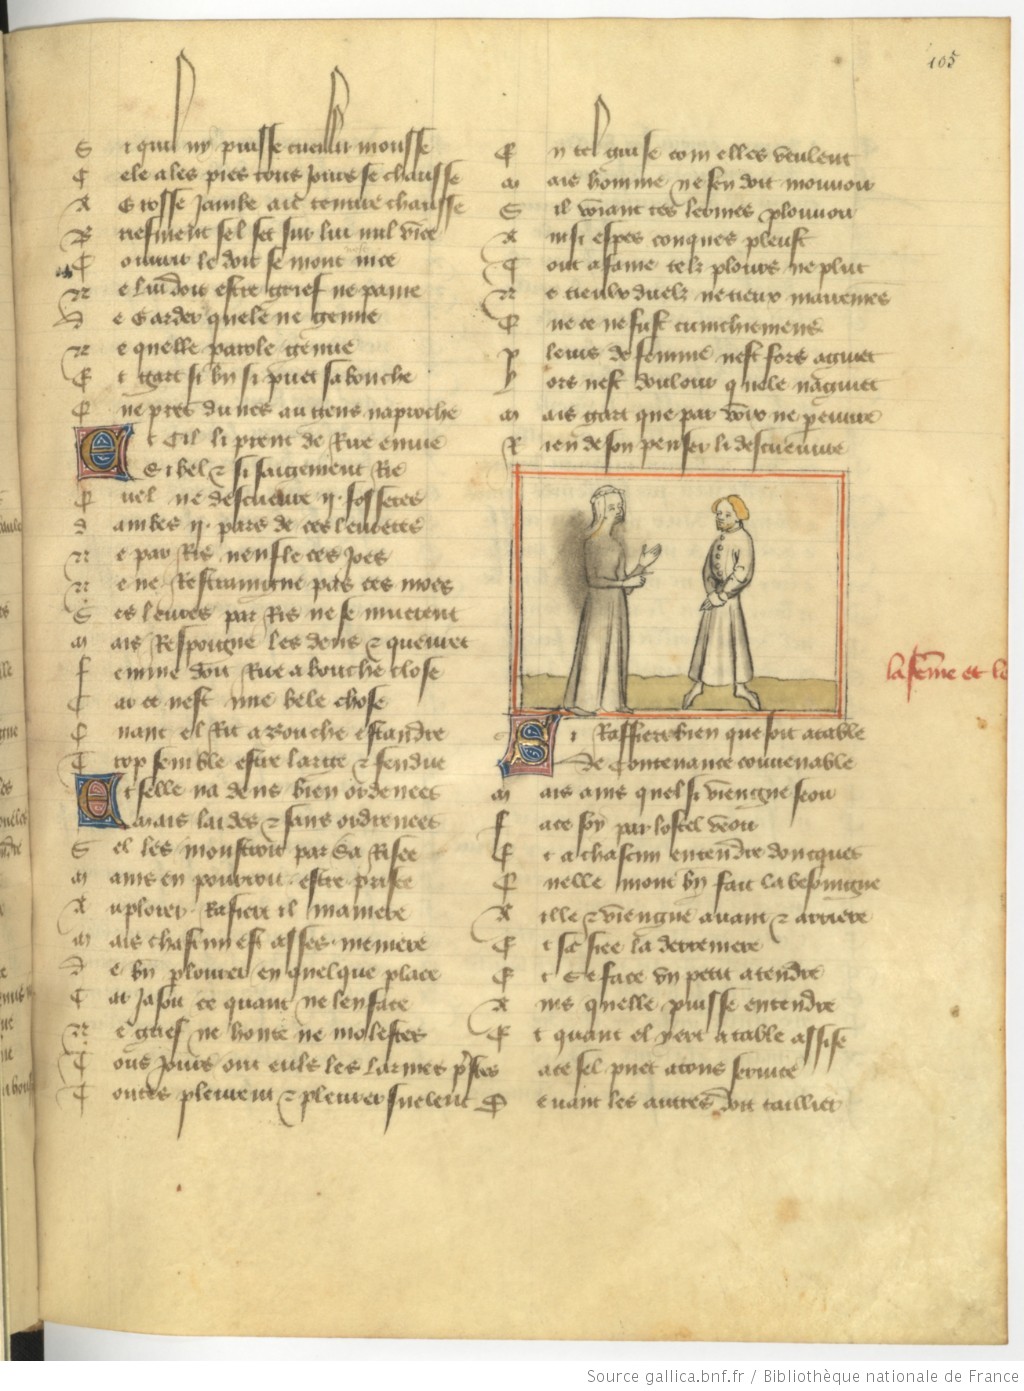 105
Et quil ny puisse cueillir mousse
Cele a les pies tous jours se chausse
A grosse jambe ait tenue chausse
Briefment sel set sur lui nul vice
Couvrir le doit se mont nice
Ne lui doit estre grief ne paine
De garder quele ne
Ne quelle parole
Et gart si bn si puet sa bouche
Que pres du nes au tiens naproche
Et Cil li prent de Rire envie
Si bel et si saigement Rie
Quel ne descueuve ii fossetes
dambes ii pars de ces levretes
Ne par Ris nenfle ces joes
Ne ne Restraingne pas ces moes
Ses levres par Ris ne se
mais Respoigne les dens et queuvet
femme doit Rire a bouche close
Car ce nest mie bele chose
Quant el Rit a bouche estandre
Trop semble estre large et fendue
Et selle na dens bien ordenees
mais laides et sans ordrenees
Sel les monstroit par Sa Risee
mains en pourroit estre prisee
Au plorer Rafiert il maniere
mais chascun est asses
De bn plourer en quelque place
Car jasou ce quant ne len face
Ne grief ne honte ne molestes
Tous jours ont eules les larmes prestes
Toutes pleurent et pleurer suelent
En tel guise com elles veulent
mais homme ne sen doit mouvoir
Sil voiant tes lermes plouvoir
Ainsi espes conques pleust
Cont a fame telz plours ne plut
Ne tieulx duelz ne tieux
Que ce ne fust cunchiemens
pleurs de femme nest fors aguiet
lors nest doulour quele naguiet
mais gart que par voix ne
Rien de son penser li descueuvre
la feme et le
Si Raffiert bien que soit a table
De Contenance couvenable
mais ains quel si viengne seoir
face soy par lostel veoir
Et a chascun entendre doncques
Quelle mont bn fait la besoingne
Aille et viengne avant et arriere
Et sa siee la derreniere
Et Se face un petit atendre
Ains quelle puisse entendre
Et quant el yert a table assise
face sel puet a tous service
Devant les autres doit taillier
Source gallica.bnf.fr / Bibliothèque nationale de France